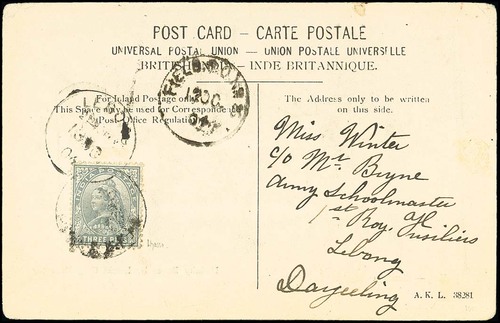 POST CARD – CARTE POSTALE
UNIVERSAL POSTAL UNION – UNION POSTALE UNIVERSELLE
BRITISH INDE BRITANNIQUE.
For Inland Postage only
This Space may be used for Correspondence
Post Office Regulation
The Address only to be written
on this side.
FIELD P.O.
12 OC
THREE
Miss Winter
c/o Mr. Bryne
Army Schoolmaster
1st Roy. Fusiliers
Lebong
Darjeeling
A. K. L. 38281